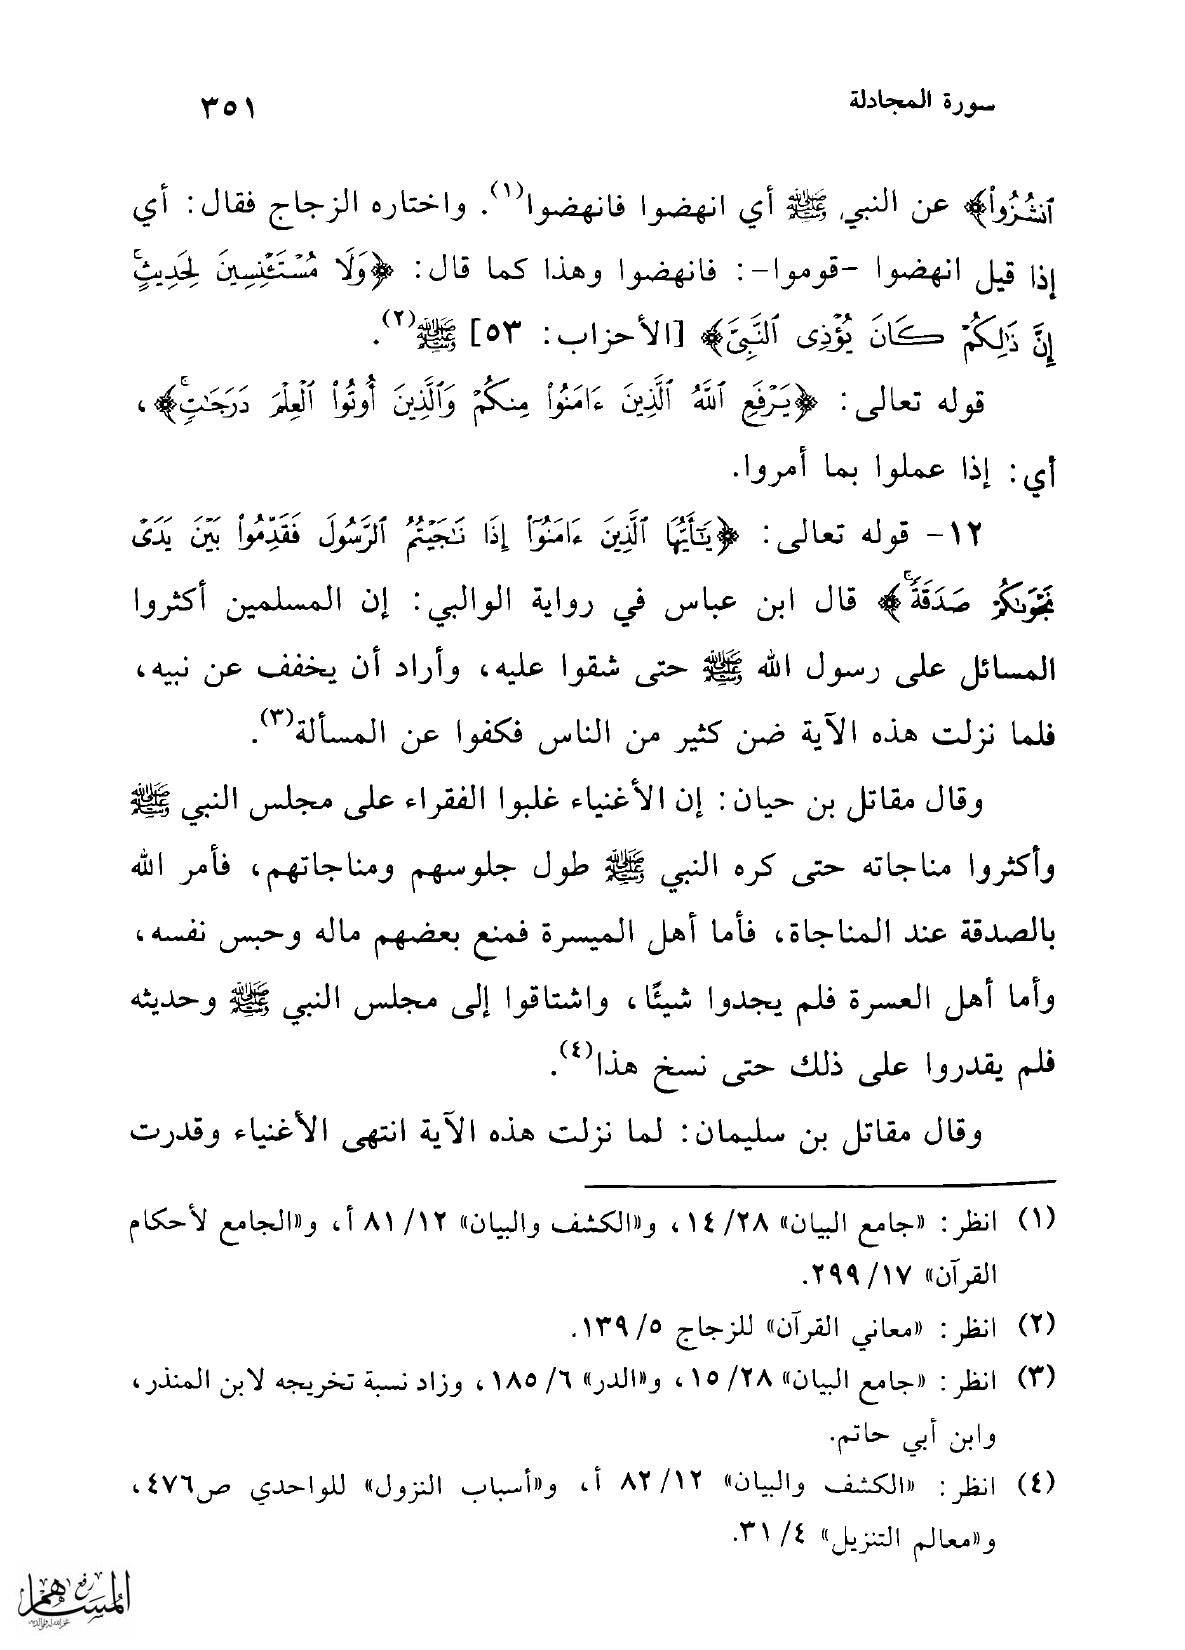 سورة المجادلة ٣٥١
ٱنشُزُوا۟﴾ عن النبي ﷺ أي انهضوا فانهضوا(١). واختاره الزجاج فقال: أي
إذا قيل انهضوا -قوموا-: فانهضوا وهذا كما قال: ﴿وَلَا مُسْتَـْٔنِسِينَ لِحَدِيثٍ ۚ
إِنَّ ذَٰلِكُمْ كَانَ يُؤْذِى ٱلنَّبِىَّ﴾ [الأحزاب: ٥٣] ﷺ(٢).
قوله تعالى: ﴿يَرْفَعِ ٱللَّهُ ٱلَّذِينَ ءَامَنُوا۟ مِنكُمْ وَٱلَّذِينَ أُوتُوا۟ ٱلْعِلْمَ دَرَجَـٰتٍ ۚ﴾،
أي: إذا عملوا بما أمروا.
١٢- قوله تعالى: ﴿يَـٰٓأَيُّهَا ٱلَّذِينَ ءَامَنُوٓا۟ إِذَا نَـٰجَيْتُمُ ٱلرَّسُولَ فَقَدِّمُوا۟ بَيْنَ يَدَىْ
نَجْوَىٰكُمْ صَدَقَةً ۚ﴾ قال ابن عباس في رواية الوالبي: إن المسلمين أكثروا
المسائل على رسول الله ﷺ حتى شقوا عليه، وأراد أن يخفف عن نبيه،
فلما نزلت هذه الآية ضن كثير من الناس فكفوا عن المسألة(٣).
وقال مقاتل بن حيان: إن الأغنياء غلبوا الفقراء على مجلس النبي ﷺ
وأكثروا مناجاته حتى كره النبي ﷺ طول جلوسهم ومناجاتهم، فأمر الله
بالصدقة عند المناجاة، فأما أهل الميسرة فمنع بعضهم ماله وحبس نفسه،
وأما أهل العسرة فلم يجدوا شيئًا، واشتاقوا إلى مجلس النبي ﷺ وحديثه
فلم يقدروا على ذلك حتى نسخ هذا(٤).
وقال مقاتل بن سليمان: لما نزلت هذه الآية انتهى الأغنياء وقدرت
(١) انظر: «جامع البيان» ٢٨/ ١٤، و«الكشف والبيان» ١٢/ ٨١ أ، و«الجامع لأحكام
القرآن» ١٧/ ٢٩٩.
(٢) انظر: «معاني القرآن» للزجاج ٥/ ١٣٩.
(٣) انظر: «جامع البيان» ٢٨/ ١٥، و«الدر» ٦/ ١٨٥، وزاد نسبة تخريجه لابن المنذر،
وابن أبي حاتم.
(٤) انظر: «الكشف والبيان» ١٢/ ٨٢ أ، و«أسباب النزول» للواحدي ص٤٧٦،
و«معالم التنزيل» ٤/ ٣١.